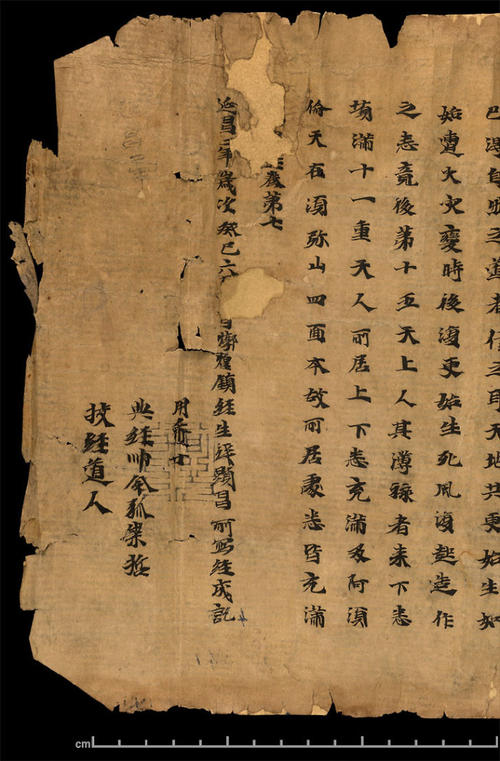 自照 者信之耳天地共更始生如
始遭火災變時後復更始生死風復起造作
之悉竟後第十五天上人其薄祿者來下悉
填滿十一重天人所居上下悉充滿及阿須
倫天在須弥山四面本故所居處悉皆充滿
第七
延昌二年歲次癸巳六 日燉煌鎮經生張顯昌所寫經成訖
用紙
典經帥令狐崇哲
校經道人
cm